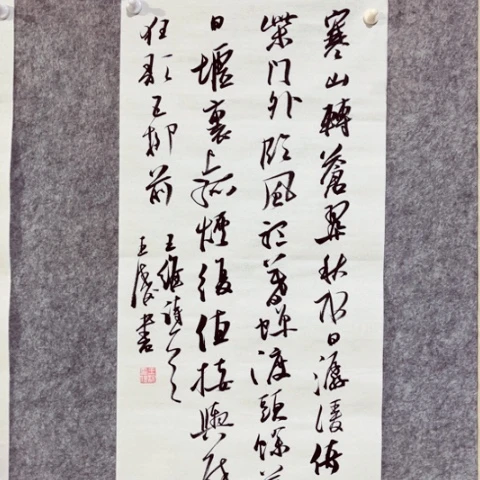 寒山轉蒼翠秋水日潺湲倚
柴門外臨風聽暮蟬渡頭餘落
日墟裏上孤煙復值接輿醉
狂歌五柳前
王維詩
王書